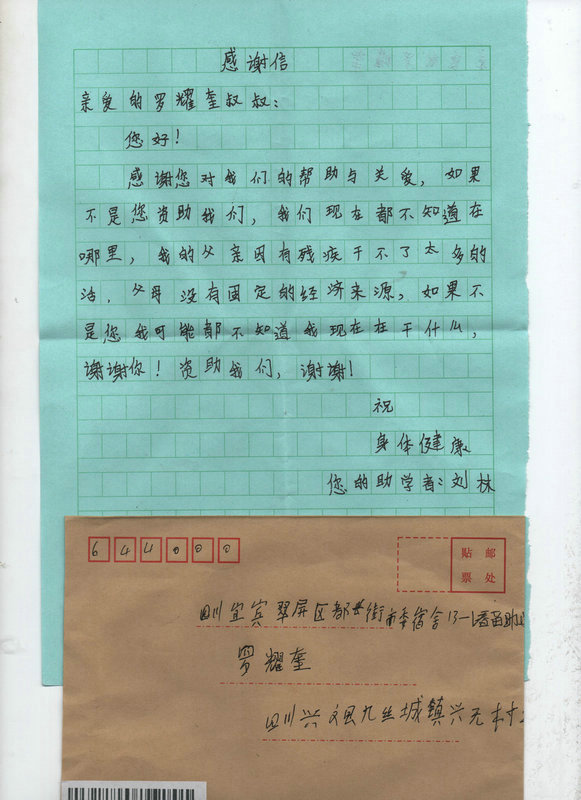 感谢信
亲爱的罗耀奎叔叔：
您好！
感谢您对我们的帮助与关爱，如果
不是您资助我们，我们现在都不知道在
哪里，我的父亲因有残疾干不了太多的
活，父母没有固定的经济来源，如果不
是您我可能都不知道我现在在干什么，
谢谢你！资助我们，谢谢！
祝
身体健康
您的助学者：刘林
644000
贴 邮
票 处
四川宜宾翠屏区都长街市委宿舍13-1
罗耀奎
四川兴文县九丝城镇兴无村